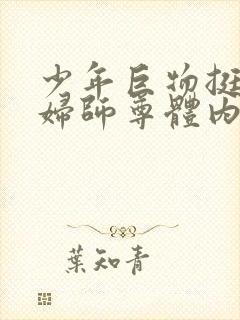 少年巨物挺
婦師尊體內
葉知青